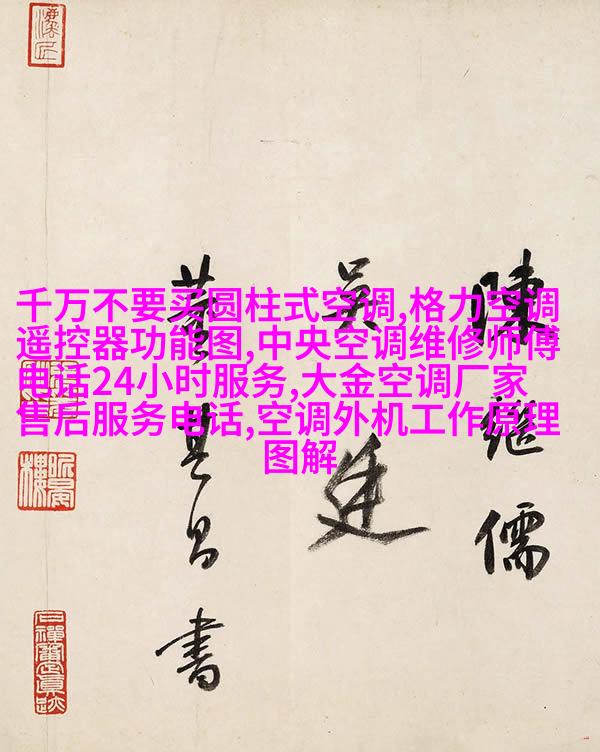 千万不要买圆柱式空调,格力空调
遥控器功能图,中央空调维修师傅
电话24小时服务,大金空调厂家
售后服务电话,空调外机工作原理
图解
陳繼儒
吳廷
董其昌書